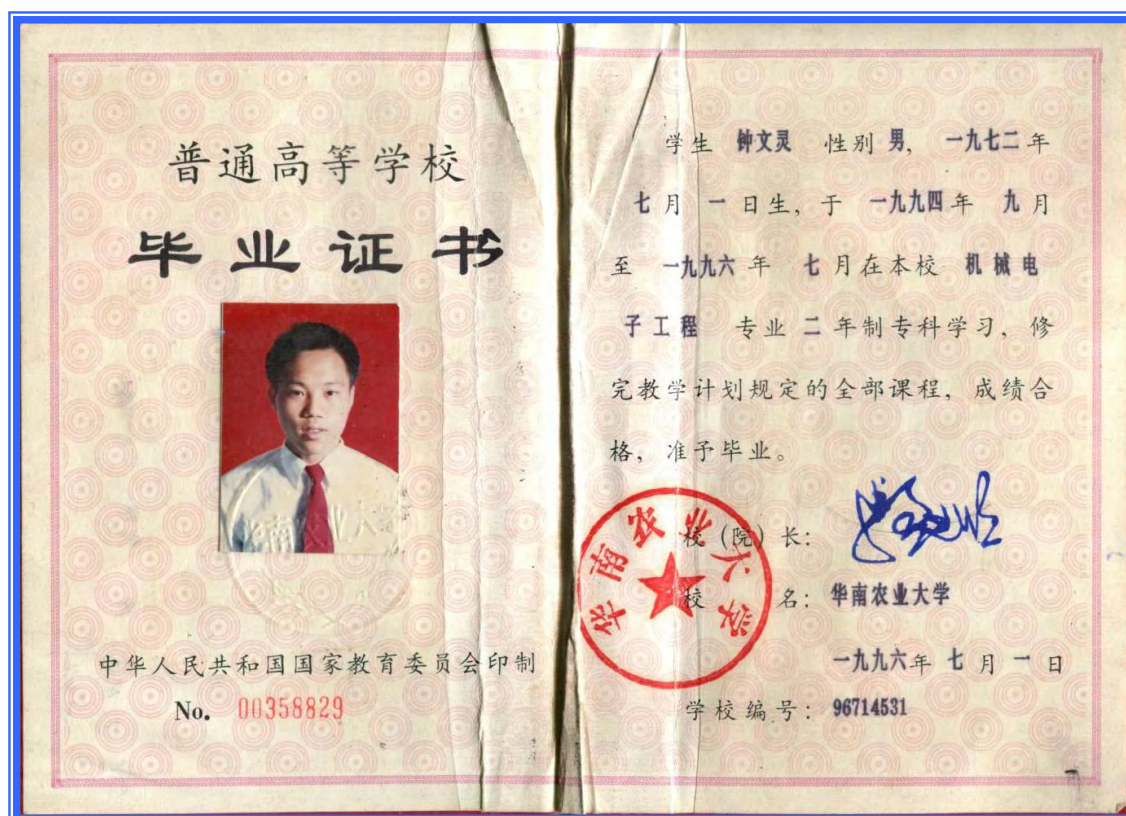 普通高等学校
毕业证书
中华人民共和国国家教育委员会印制
No. 00358829
学生 钟文灵 性别 男, 一九七二年
七月 一日生, 于 一九九四年 九月
至 一九九六年 七月在本校 机械电
子工程 专业 二年制专科学习, 修
完教学计划规定的全部课程, 成绩合
格, 准予毕业。
校(院)长:
校 名: 华南农业大学
一九九六年 七月 一日
学校编号: 96714531
华南农业大学
华南农业大